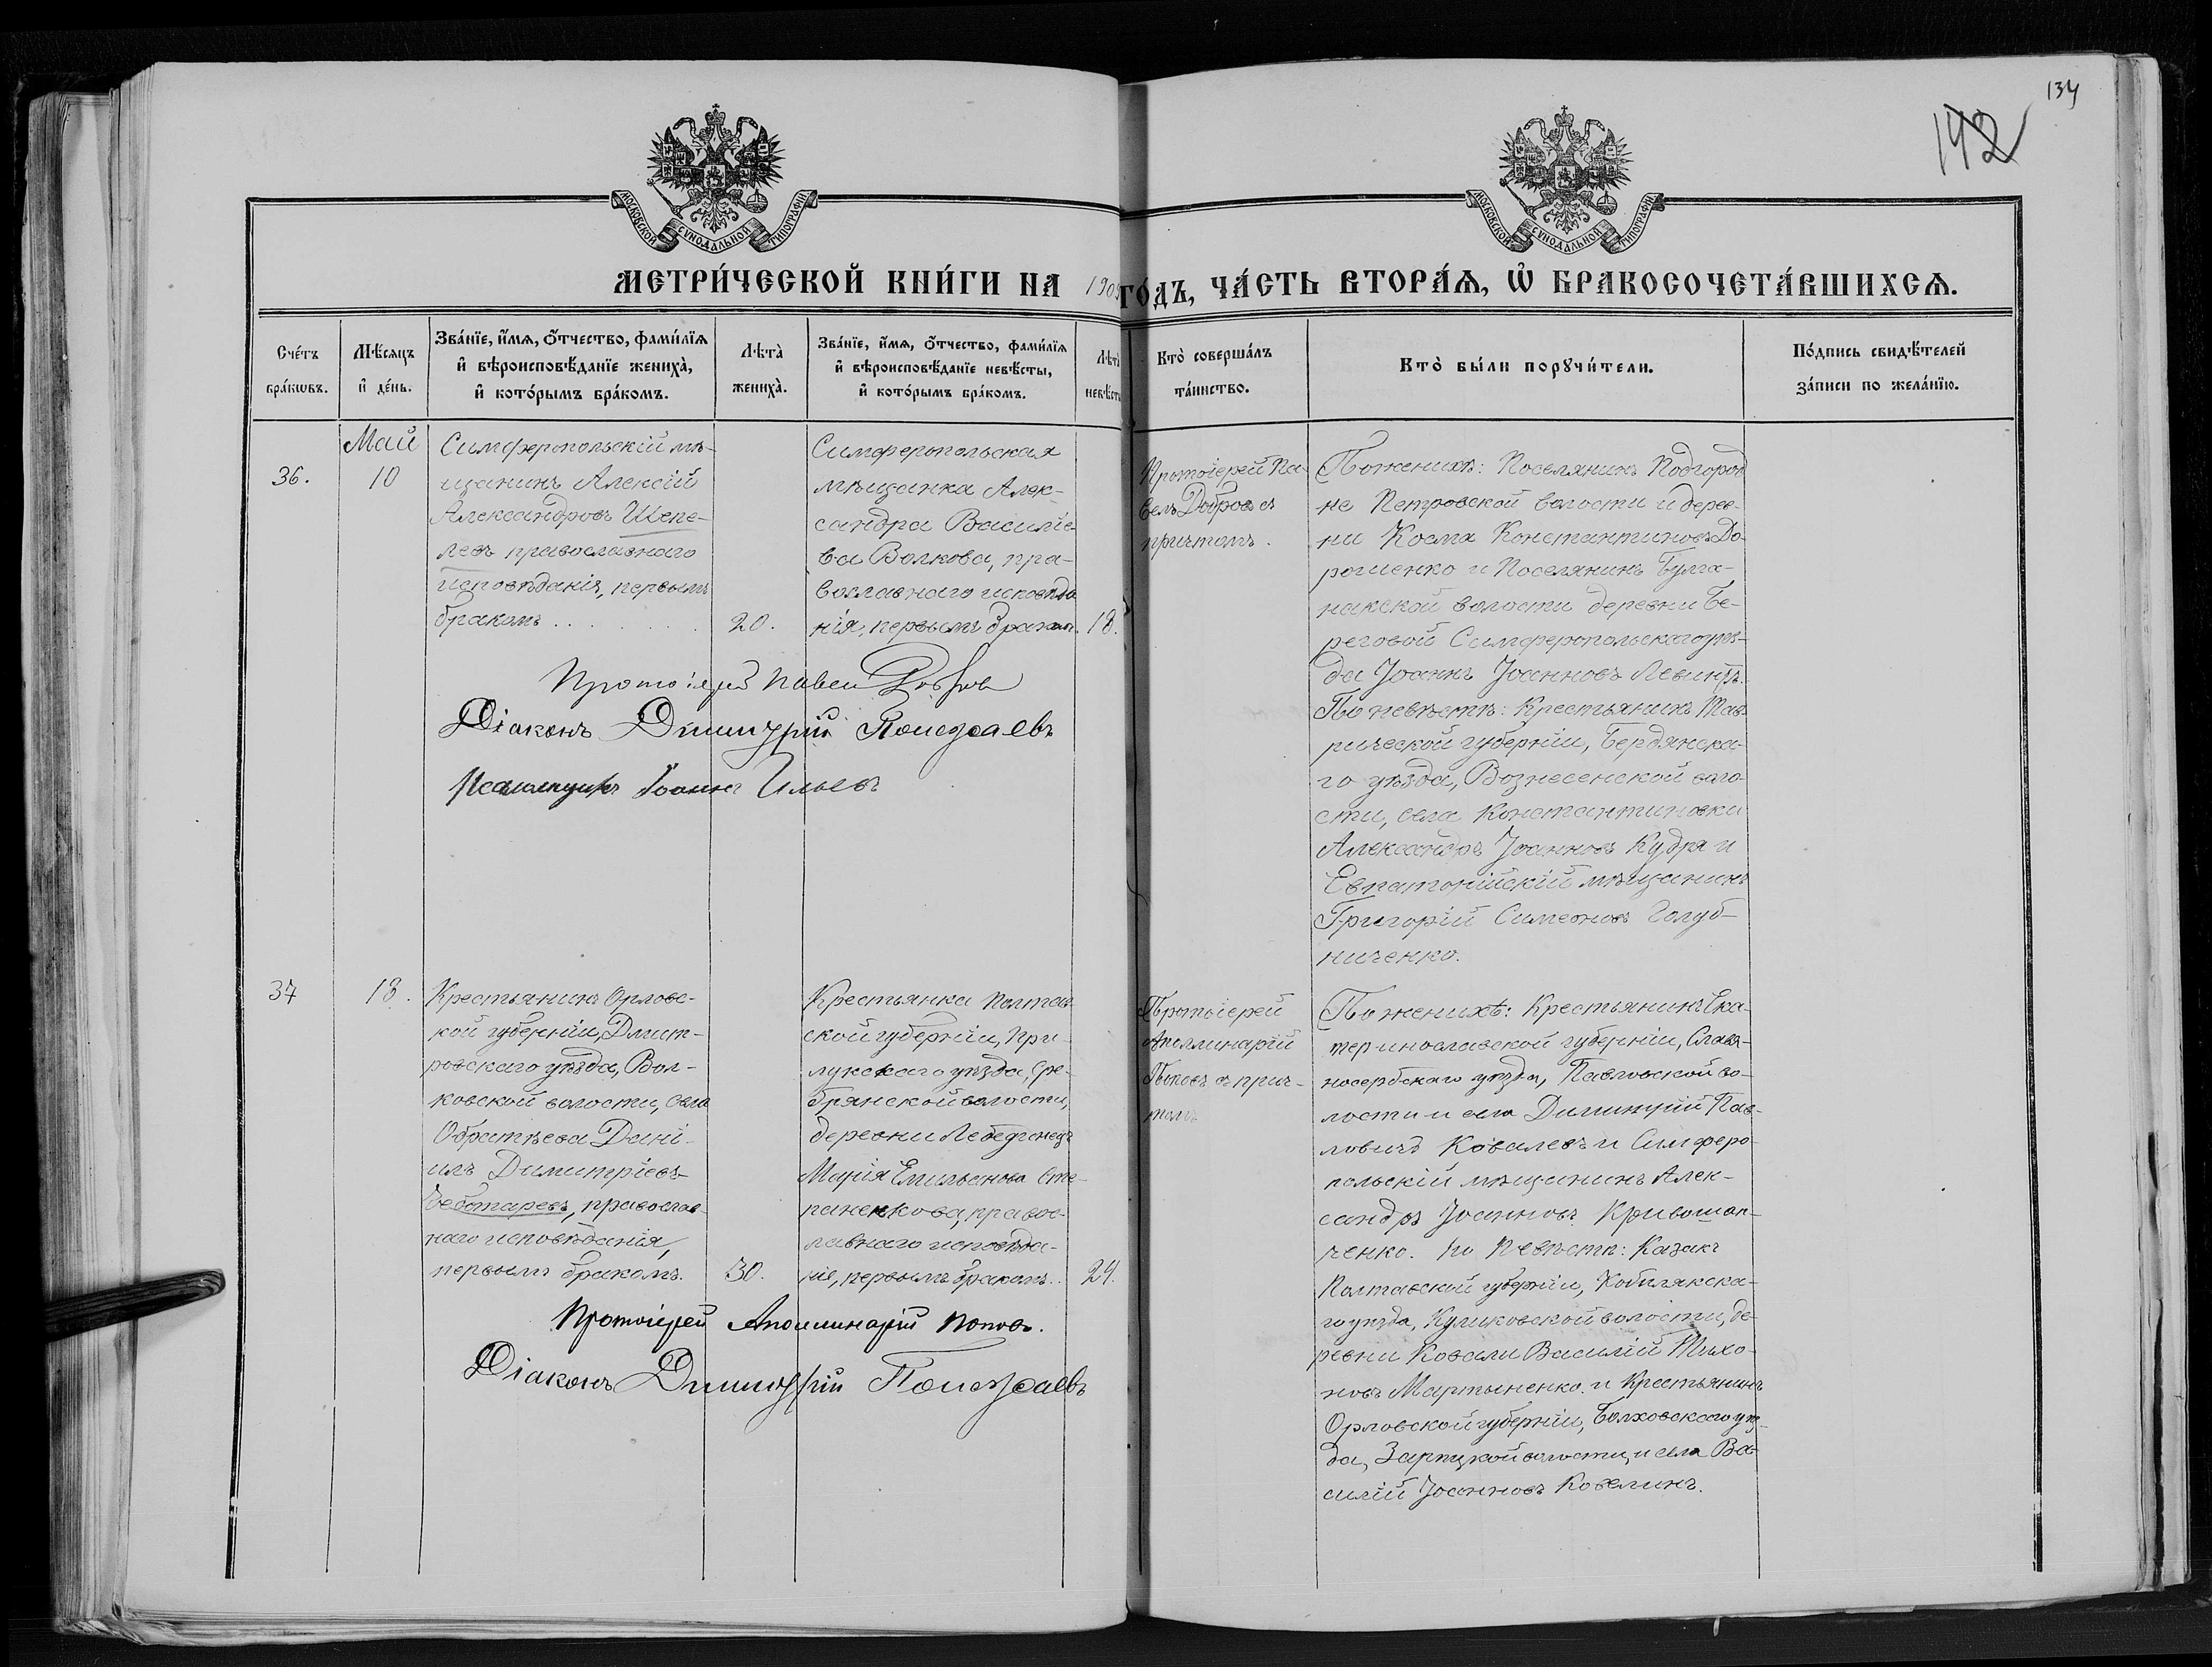 134
192
МОСКОВСКОЙ СѴНОДАЛЬНОЙ ТИПОГРАФІИ
МОСКОВСКОЙ СѴНОДАЛЬНОЙ ТИПОГРАФІИ
МЕТРИ́ЧЕСКОЙ КНИ́ГИ НА 190
ГО́ДЪ, ЧА́СТЬ ВТОРА́Ѧ, Ѽ БРАКОСОЧЕТА́ВШИХСѦ.
Сче́тъ
бра́кѡвъ.
Мѣ́сяцъ
и҆ де́нь.
Зва́нїе, и҆́мѧ, ѻ҆́тчество, фами́лїѧ
и҆ вѣроисповѣ́данїе жениха̀,
и҆ кото́рымъ бра́комъ.
Лѣта̀
жениха̀.
Зва́нїе, и҆́мѧ, ѻ҆́тчество, фами́лїѧ
и҆ вѣроисповѣ́данїе невѣ́сты,
и҆ кото́рымъ бра́комъ.
Лѣта̀
невѣ́сты
Кто̀ соверша́лъ
та́инство.
Кто̀ бы́ли порꙋчи́тели.
По́дпись свидѣ́телей
за́писи по жела́нїю.
36.
Май
10
Симферопольскій мѣ-
щанинъ Алексій
Александровъ Шепе-
левъ православнаго
исповѣданія, первымъ
бракомъ . . . . . .
20.
Симферопольская
мѣщанка Алек-
сандра Василіе-
ва Волкова, пра-
вославнаго исповѣда
нія, первымъ бракомъ.
18.
Протоіерей Па-
велъ Добровъ съ
причтомъ.
По женихѣ: Поселянинъ Подгород
не Петровской волости и дерев-
ни Косма Константиновъ До-
рошенко и Поселянинъ Булга-
накской волости деревни Бе-
реговой Симферопольскаго уѣз-
да Іоаннъ Іоанновъ
По невѣстѣ: Крестьянинъ Тав-
рической губерніи, Бердянска-
го уѣзда, Вознесенской воло-
сти, села Константиновки
Александръ Іоанновъ Кудря и
Евпаторійскій мѣщанинъ
Григорій Симеоновъ Голуб-
ниченко.
Протоіерей Павелъ Добровъ
Діаконъ Димитрій
Псаломщикъ Іоаннъ Ильевъ
37
13.
Крестьянинъ Орловс-
кой губерніи, Дмит-
ровскаго уѣзда, Вол-
ковской волости, села
Обратѣева Дани-
илъ Димитріевъ
Чеботаревъ, православ-
наго исповѣданія,
первымъ бракомъ.
30.
Крестьянка Полтав-
ской губерніи, При-
лукскаго уѣзда, Сре-
брянской волости,
деревни Лебединецъ
Марія Емильянова Сте-
паненкова, правос-
лавнаго исповѣда-
ніе, первымъ бракомъ..
24.
Протоіерей
Аполлинарій
Поповъ с прич-
томъ
По женихѣ: Крестьянинъ Ека-
теринославской губерніи, Славя-
носербскаго уѣзда, Павловской во-
лости и села Димитрій Пав-
ловичъ Ковалевъ и Симферо-
польскій мѣщанинъ Алек-
сандръ Іоанновъ
ченко. По невѣстѣ: Казакъ
Полтавской губерніи, Кобылякска-
го уѣзда, Куликовской волости, де-
ревни Ковали Василій Тихо-
новъ Мартыненко и Крестьянинъ
Орловской губерніи, Болховскаго уѣз-
да, волости, и села Ва-
силій Іоанновъ
Протоіерей Аполлинарій Поповъ.
Діаконъ Димитрій